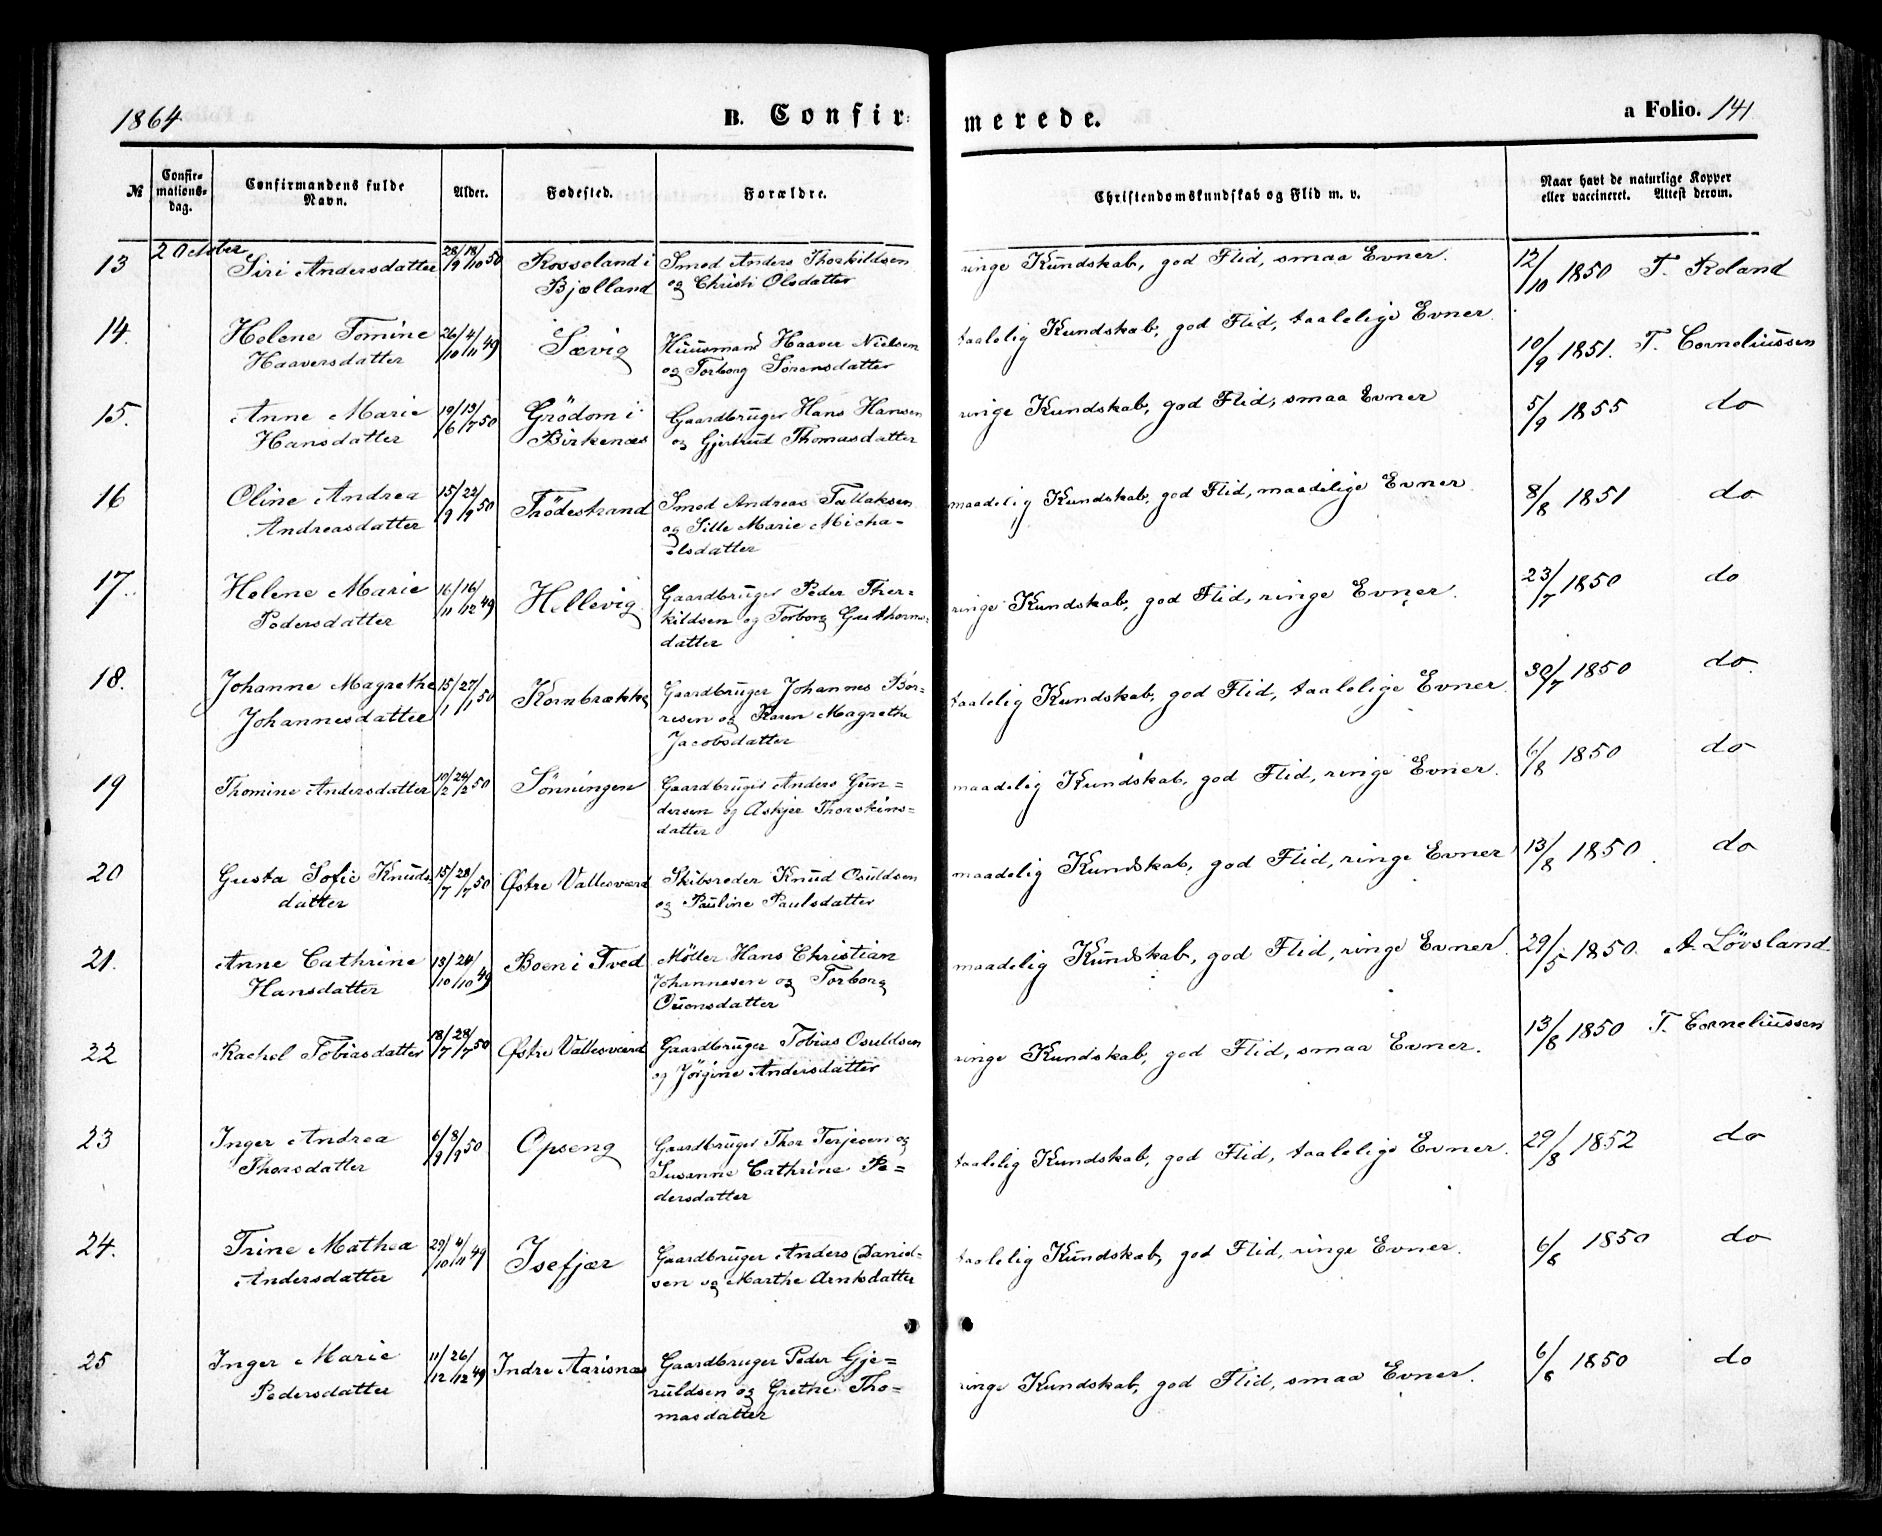 1864
B. Confir-
merede.
a Folio. 141
№
Confir-
mations-
dag.
Confirmandens fulde
Navn.
Alder.
Fødested.
Forældre.
Christendomskundskab og Flid m. v.
Naar havt de naturlige Kopper
eller vaccineret. Attest derom.
13 2 October Siri Andersdatter 28/9 13/10 50 Rosseland i Smed Anders Thorkildsen ringe Kundskab, god Flid, smaa Evner. 12/10 1850 T. Roland
Bjælland og Christi Olsdatter
14. Helene Tomine 26/10 4/11 49 Sævig Huusmand Haaver Nielsen taalelig Kundskab, god Flid, taalelige Evner. 10/9 1851. T. Corneliussen
Haaversdatter og Torborg Sørensdatter
15. Anne Marie 19/6 13/7 50 Grödom i Gaardbruger Hans Hansen ringe Kundskab, god Flid, smaa Evner 5/9 1855 do
Hansdatter Birkenæs og Gjertrud Thomasdatter
16 Oline Andrea 15/9 22/9 50 Frödestrand Smed Andreas Tellaksen maadelig Kundskab, god Flid, maadelige Evner 8/8 1851 do
Andreasdatter og Sille Marie Micha-
elsdatter
17. Helene Marie 16/11 16/12 49 Hellevig Gaardbruger Peder Ther- ringe Kundskab, god Flid, ringe Evner. 23/7 1850 do
Pedersdatter kildsen og Torborg Guthorms-
datter
18. Johanne Magrethe 15/1 27/1 50 Kornbrække Gaardbruger Johannes Bør- taalelig Kundskab, god Flid, taalelige Evner. 30/7 1850 do
Johannesdatter resen og Karen Magrethe
Jacobsdatter
19 Thomine Andersdatter 10/2 24/2 50 Sönningen Gaardbruger Anders Gun- maadelig Kundskab, god Flid, ringe Evner. 6/8 1850 do
dersen og Askjer Thorskins-
datter
20 Gusta Sofie Knuds 15/7 28/7 50 Østre Vallesværd Skibsreder Knud Osuldsen maadelig Kundskab, god Flid, ringe Evner 13/8 1850 do
datter og Pauline Paulsdatter
21. Anne Cathrine 13/10 24/10 49 Boen i Tved Möller Hans Christian maadelig Kundskab, god Flid, ringe Evner. 29/5 1850. A. Lövsland
Hansdatter Johannesen og Torborg
Ouensdatter
22 Rachel Tobiasdatter 18/7 28/7 50 Østre Vallesværd Gaardbruger Tobias Osuldsen ringe Kundskab, god Flid, smaa Evner. 13/8 1850 T. Corneliussen
og Jörgine Andersdatter
23 Inger Andrea 6/9 8/9 50 Opseng Gaardbruger Thor Terjesen og taalelig Kundskab, god Flid, taalelige Evner. 29/8 1852 do
Thorsdatter Susanne Cathrine Pe-
dersdatter
24. Trine Mathea 29/10 4/11 49 Isefjær Gaardbruger Anders Daniel- taalelig Kundskab, god Flid, ringe Evner. 6/8 1850 do
Andersdatter sen og Marthe Arntsdatter
25 Inger Marie 11/12 26/12 49 Indre Aarisnæs Gaardbruger Peder Gje- ringe Kundskab, god Flid, smaa Evner. 6/8 1850 do
Pedersdatter ruldsen og Grethe Tho-
masdatter